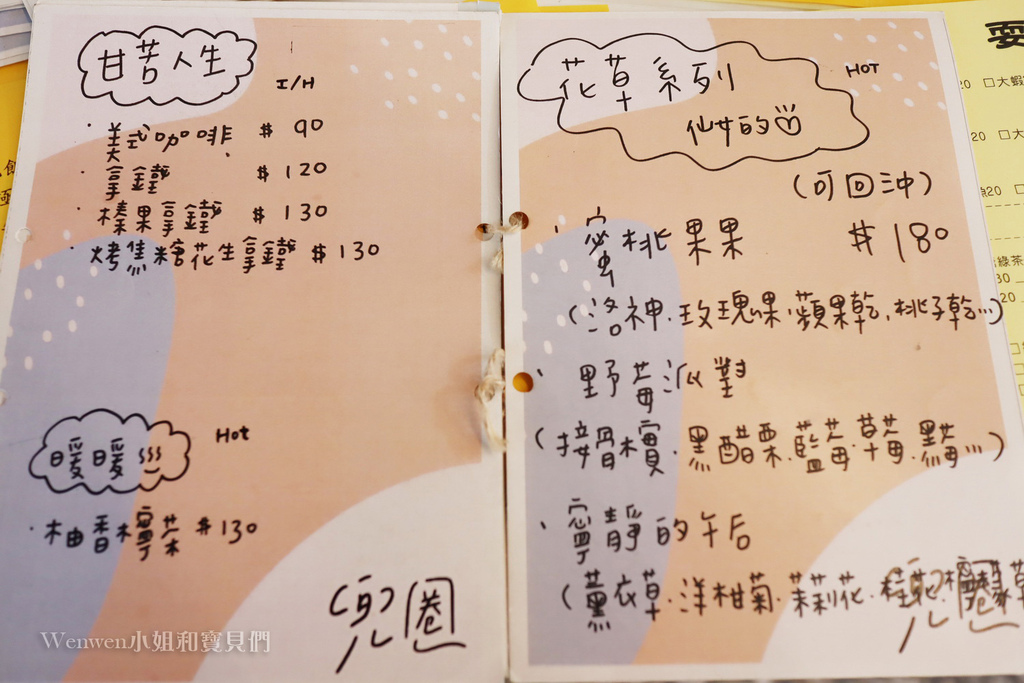 甘苦人生
I/H
·美式咖啡 $90
·拿鐵 $120
·榛果拿鐵 $130
·烤焦糖花生拿鐵 $130
暖暖
Hot
·柚香檸茶 $130
兜圈
Wenwen小姐和寶貝們
花草系列
仙女的
HOT
(可回沖)
、蜜桃果果 $180
(洛神.玫瑰果.蘋果乾.桃子乾...)
、野莓派對
(接骨木實.黑醋栗.藍莓.草莓.黑莓...)
、寧靜的午后
(薰衣草.洋柑菊.茉莉花.桂花.檸檬草
兜圈
耍
20 □大蝦
20 □大
20 □
綠茶
30
20